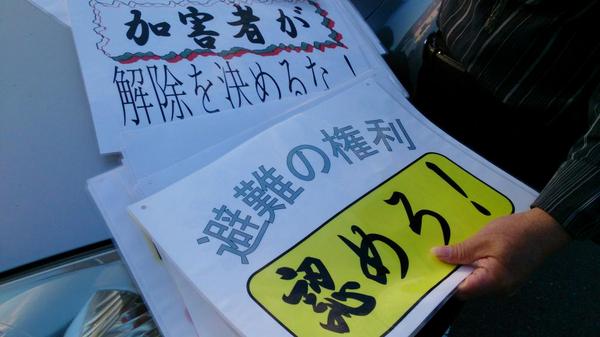 加害者が
解除を決めるな！
避難の権利
認めろ！